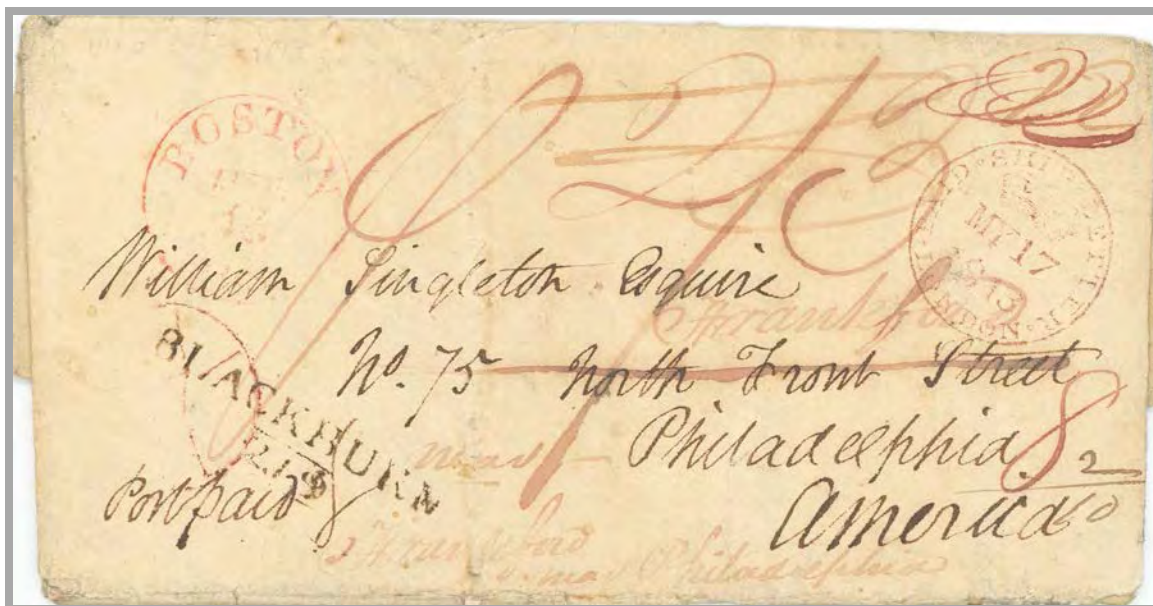 BOSTON
12
PAID SHIP LETTER
MY 17
LONDON
William Singleton Esquire
Frankford
No. 75 North Front Street
BLACKBURN
near
Philadelphia
Post paid
America
Frankford
near Philadelphia
8
2